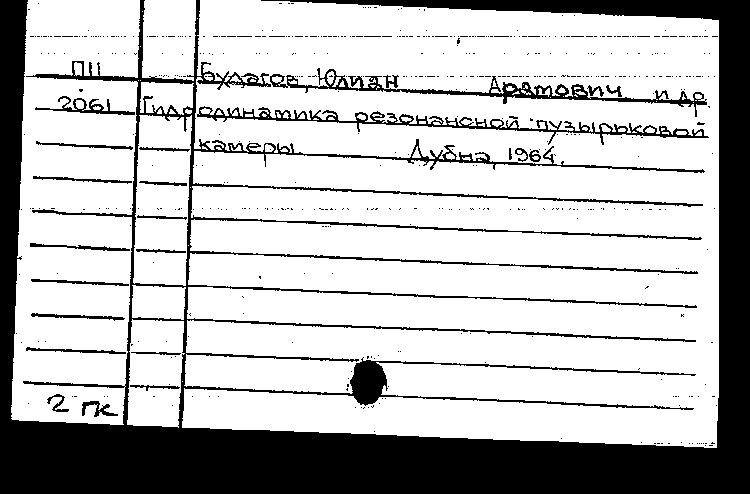 П11 Будагов, Юлиан Арамович и др.
2061 Гидродинамика резонансной пузырьковой
камеры Дубна, 1964.
2 ГК